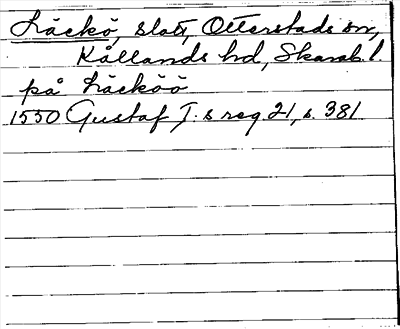 Läckö, slott, Otterstads sn,
Kållands hd, Skarab. l.
på Läcköö
1550 Gustaf I.s reg 21, s. 381